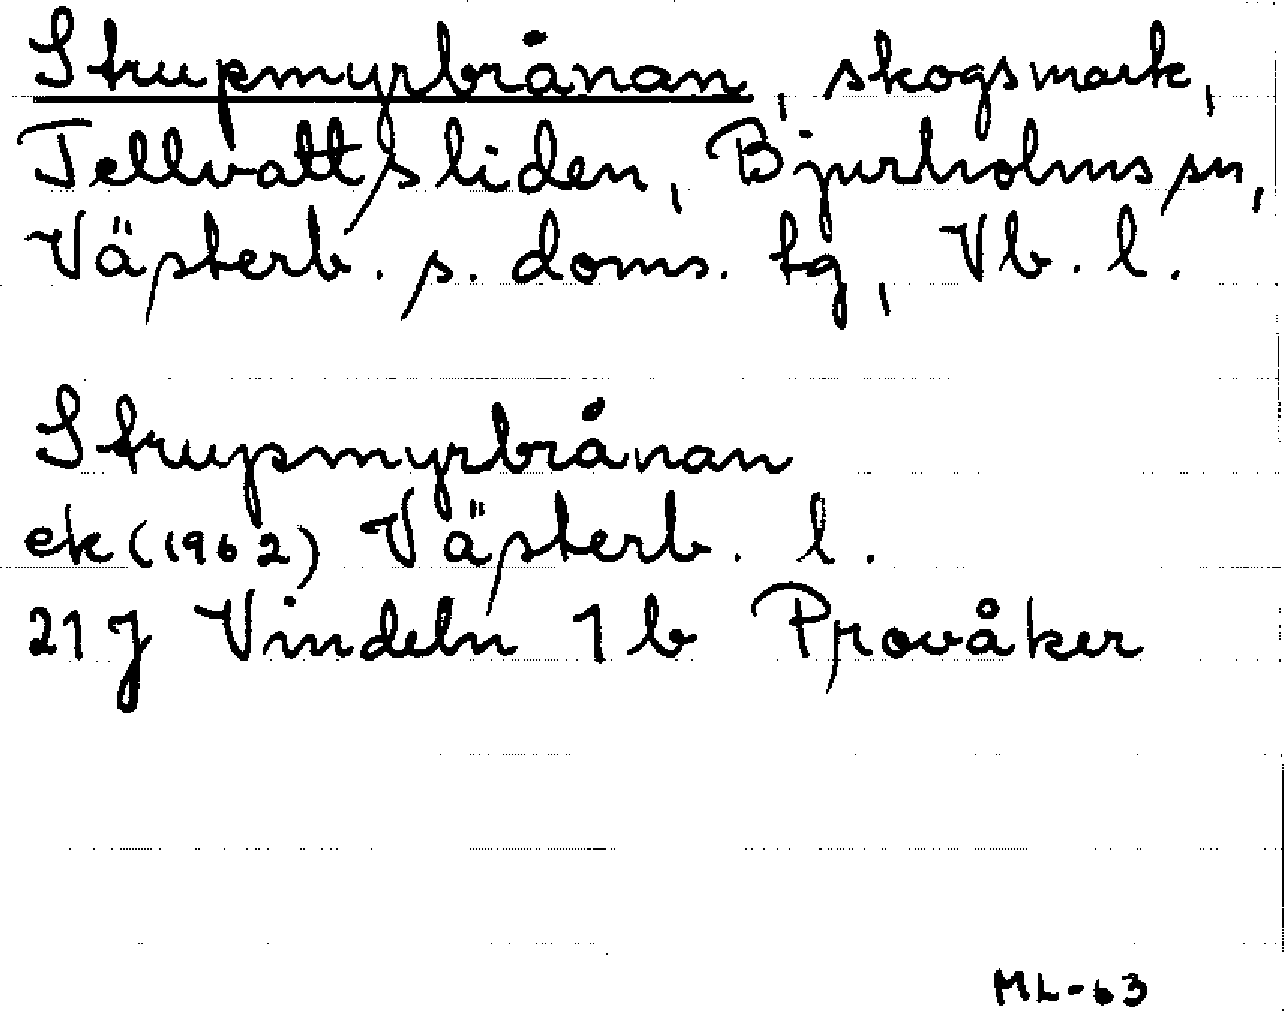 Strupmyrbrånan, skogsmark,
Tellvattsliden, Bjurholms sn,
Västerb. s. doms. tg, Vb. l.
Strupmyrbrånan
ek (1962) Västerb. l.
21 J Vindeln 1 b Provåker
ML-63